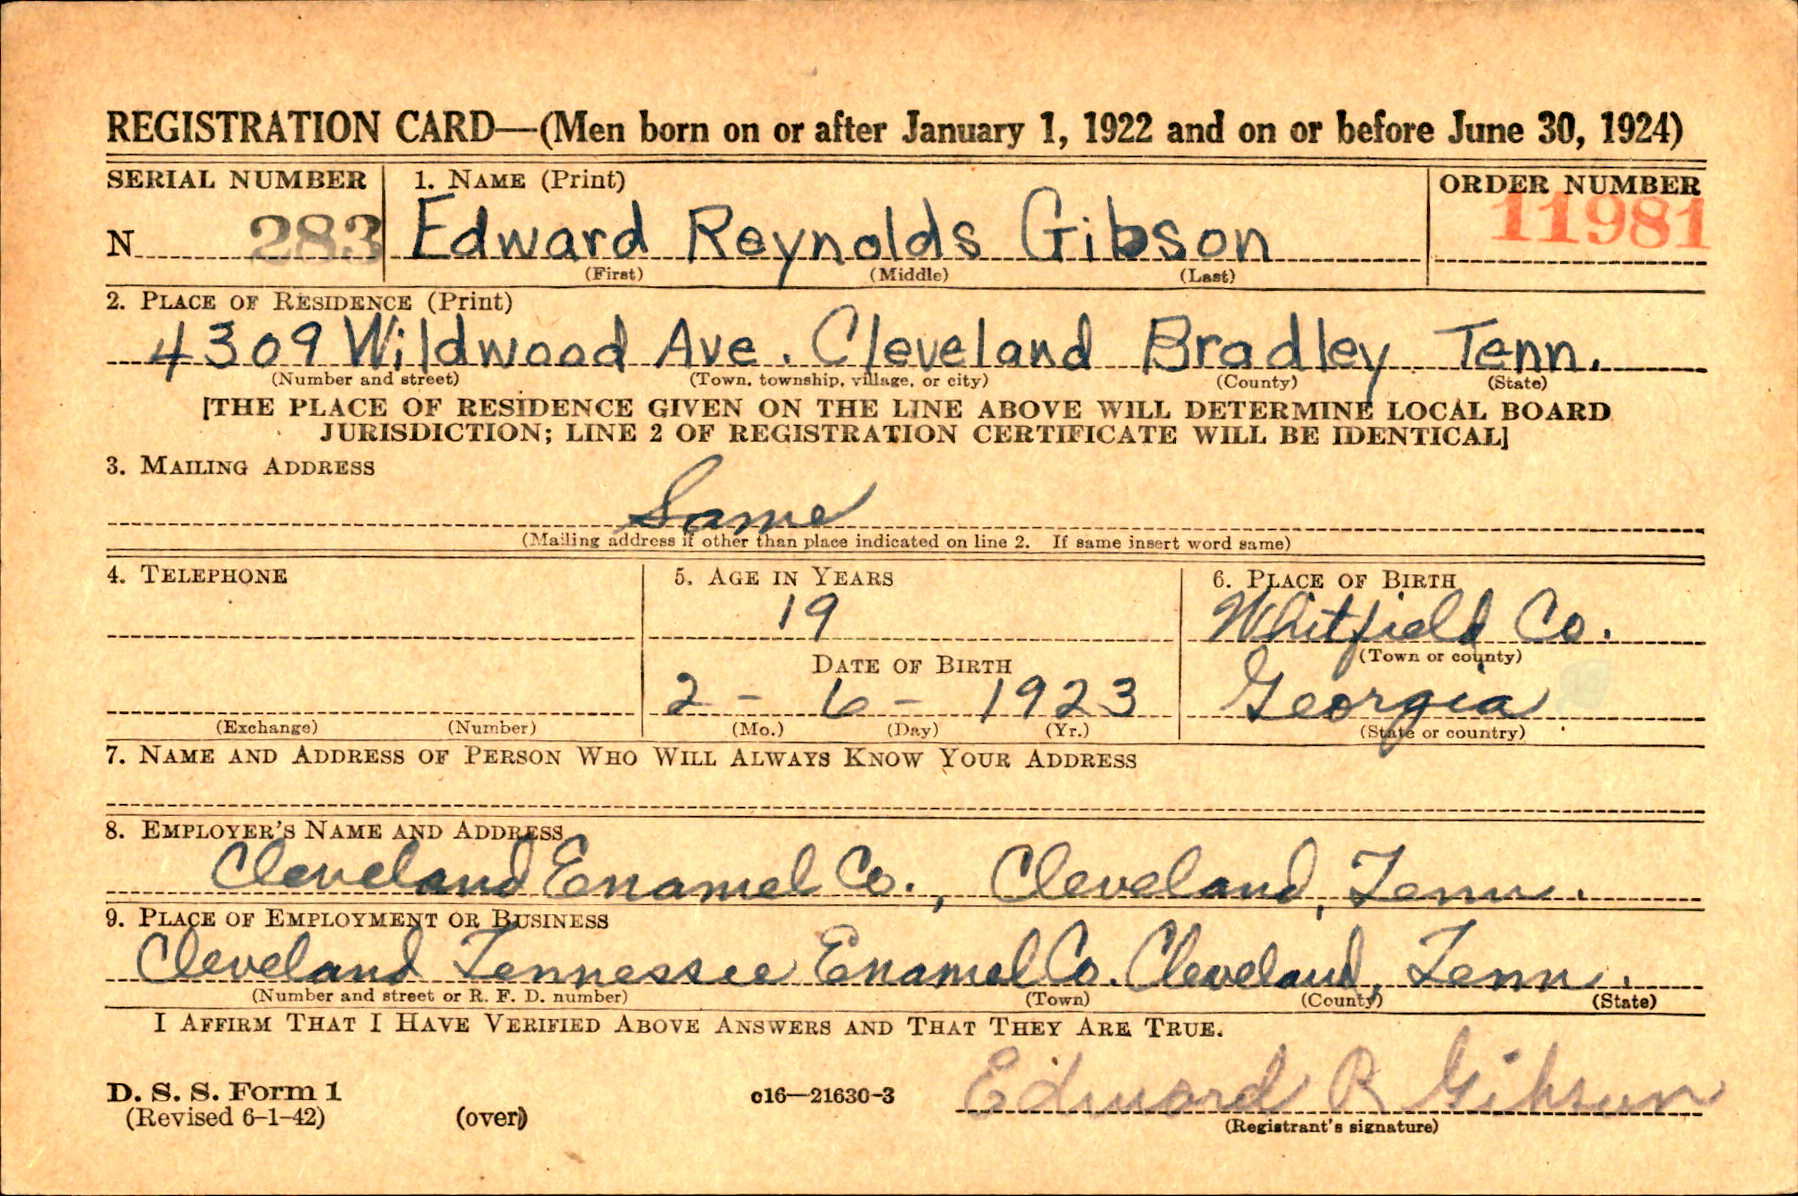 REGISTRATION CARD—(Men born on or after January 1, 1922 and on or before June 30, 1924)
SERIAL NUMBER 1. NAME (Print) ORDER NUMBER
N 283 Edward Reynolds Gibson 11981
(First) (Middle) (Last)
2. PLACE OF RESIDENCE (Print)
4309 Wildwood Ave. Cleveland Bradley Tenn.
(Number and street) (Town, township, village, or city) (County) (State)
[THE PLACE OF RESIDENCE GIVEN ON THE LINE ABOVE WILL DETERMINE LOCAL BOARD
JURISDICTION; LINE 2 OF REGISTRATION CERTIFICATE WILL BE IDENTICAL]
3. MAILING ADDRESS
Same
(Mailing address if other than place indicated on line 2. If same insert word same)
4. TELEPHONE 5. AGE IN YEARS 6. PLACE OF BIRTH
19 Whitfield Co.
(Town or county)
DATE OF BIRTH
2 - 6 - 1923 Georgia
(Exchange) (Number) (Mo.) (Day) (Yr.) (State or country)
7. NAME AND ADDRESS OF PERSON WHO WILL ALWAYS KNOW YOUR ADDRESS
8. EMPLOYER'S NAME AND ADDRESS
Cleveland Enamel Co., Cleveland, Tenn.
9. PLACE OF EMPLOYMENT OR BUSINESS
Cleveland Tennessee Enamel Co. Cleveland, Tenn.
(Number and street or R. F. D. number) (Town) (County) (State)
I AFFIRM THAT I HAVE VERIFIED ABOVE ANSWERS AND THAT THEY ARE TRUE.
Edward R Gibson
D. S. S. Form 1 c16—21630-3
(Revised 6-1-42) (over) (Registrant's signature)